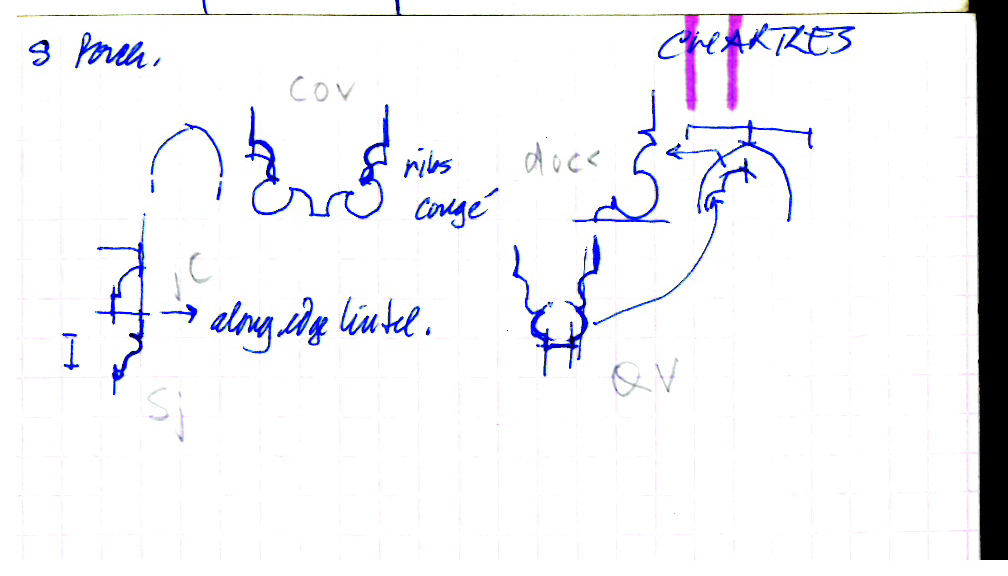 S Porch.
CHARTRES
COV
ribs
congé
doss
C
along edge lintel.
I
Sj
QV